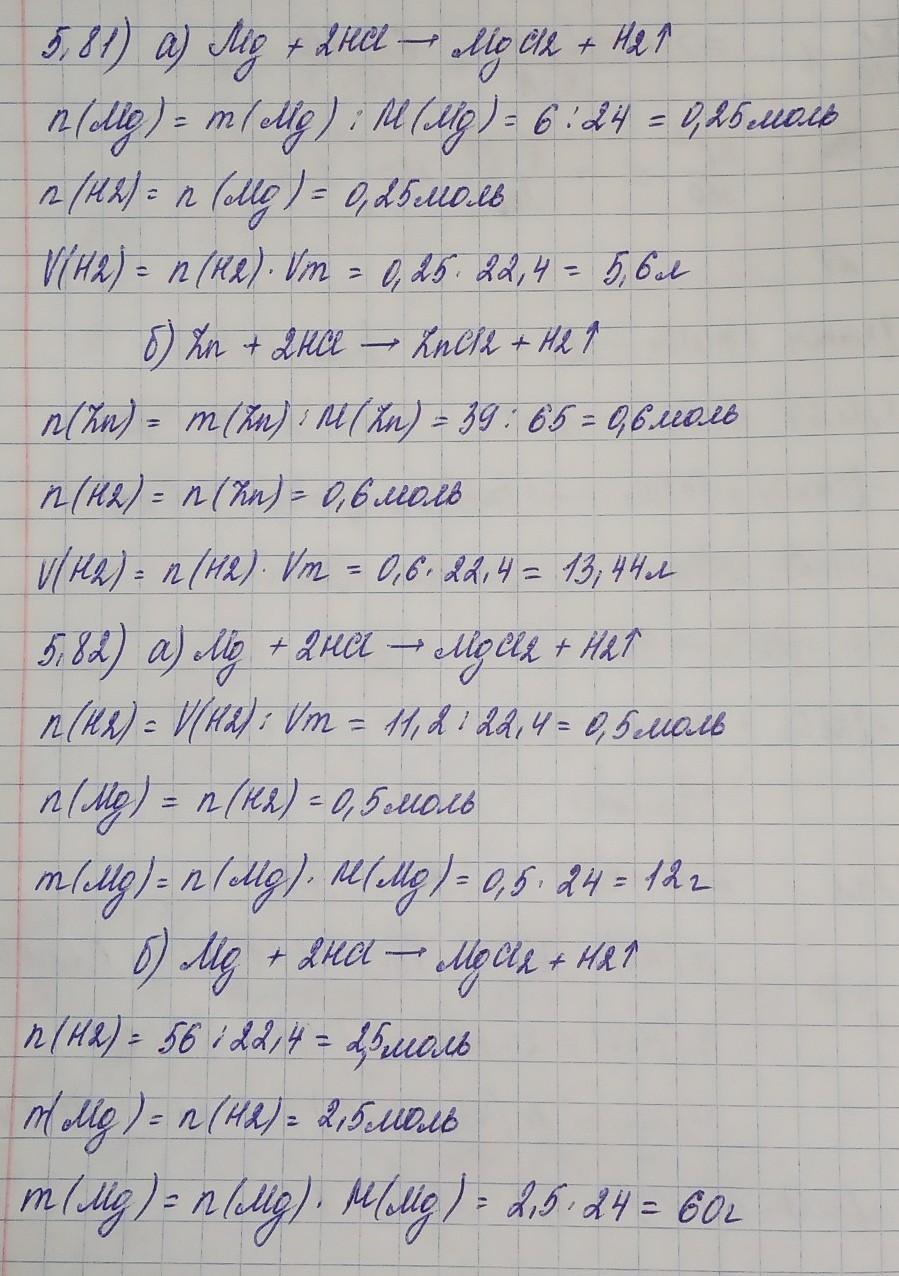 5.81) а) Mg + 2HCl → MgCl2 + H2↑
n(Mg) = m(Mg) : M(Mg) = 6 : 24 = 0,25моль
n(H2) = n(Mg) = 0,25моль
V(H2) = n(H2) · Vm = 0,25 · 22,4 = 5,6л
б) Zn + 2HCl → ZnCl2 + H2↑
n(Zn) = m(Zn) : M(Zn) = 39 : 65 = 0,6моль
n(H2) = n(Zn) = 0,6моль
V(H2) = n(H2) · Vm = 0,6 · 22,4 = 13,44л
5.82) а) Mg + 2HCl → MgCl2 + H2↑
n(H2) = V(H2) : Vm = 11,2 : 22,4 = 0,5моль
n(Mg) = n(H2) = 0,5моль
m(Mg) = n(Mg) · M(Mg) = 0,5 · 24 = 12г
б) Mg + 2HCl → MgCl2 + H2↑
n(H2) = 56 : 22,4 = 2,5моль
n(Mg) = n(H2) = 2,5моль
m(Mg) = n(Mg) · M(Mg) = 2,5 · 24 = 60г